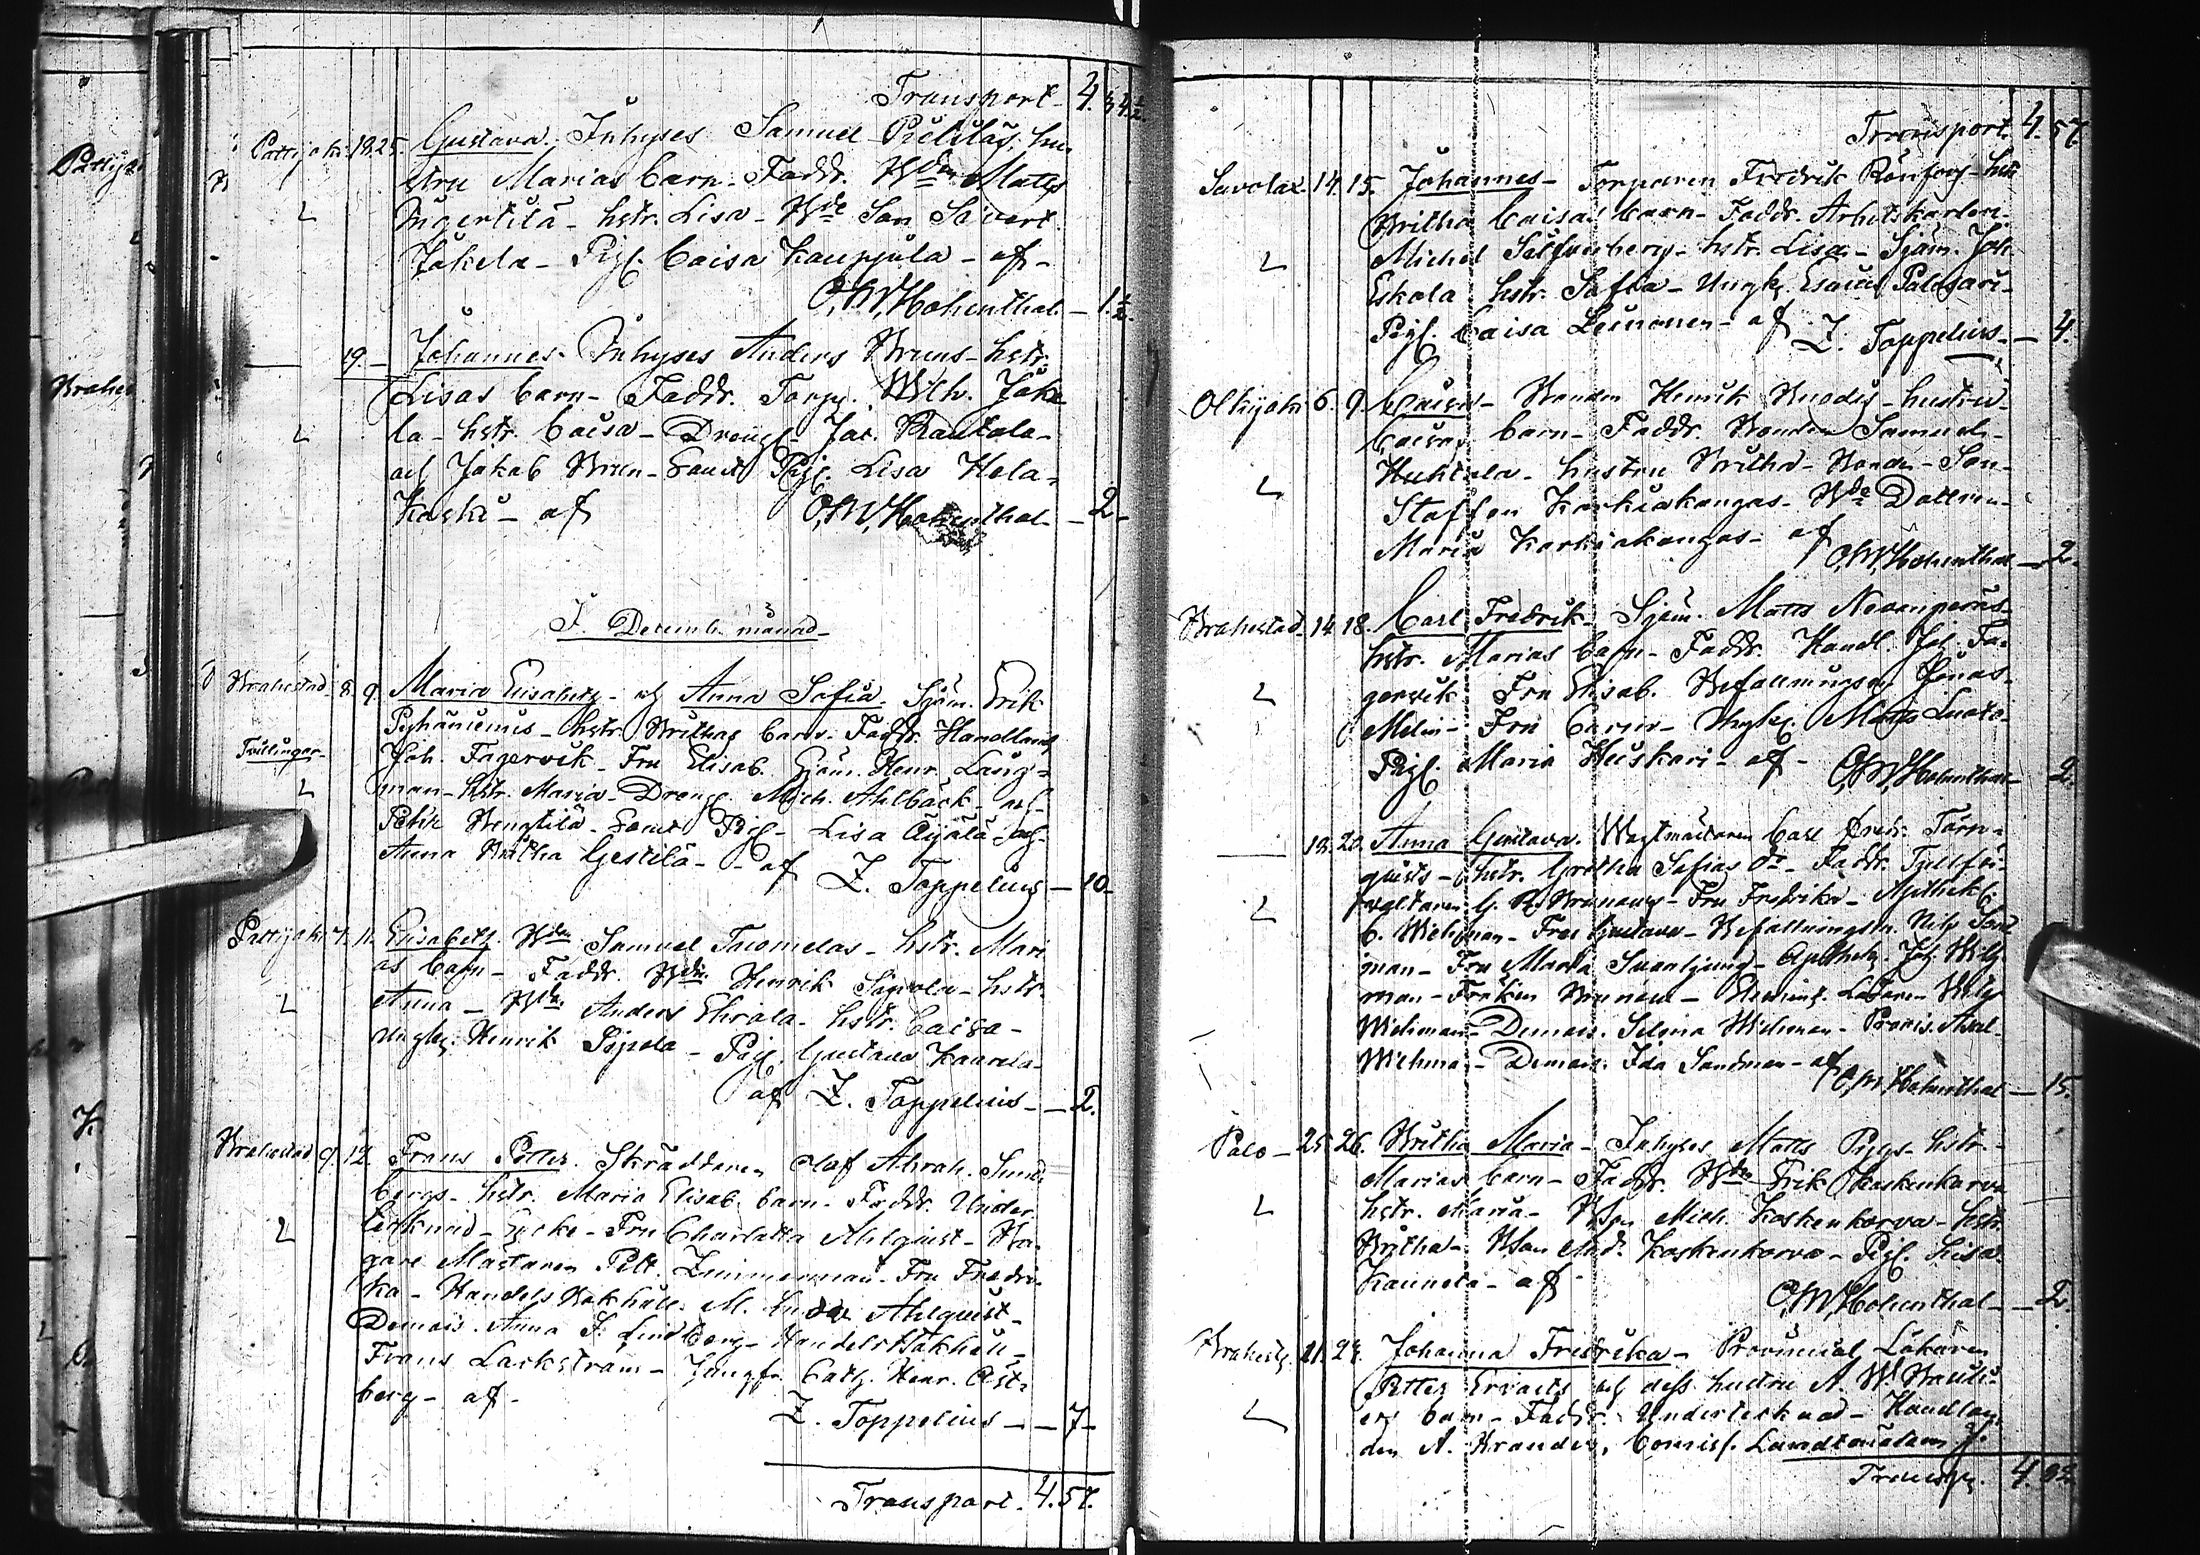 Transport 4. 34½.
Pattijoki. 18. 25. Gustava. Inhyses Samuel Pietiläs, hu-
stru Marias barn. Faddr. Wden Matts
Ingertilä - hstr. Lisa - Wde Son Sivert
Jokela - Pig. Caisa Kauppila - af -
C.M. Hohenthal - 1½.
19. - Johannes. Inhyses Anders Bruns - hstr.
Lisas barn - Faddr. Torp. Wilh. Joke
la - hstr. Caisa - Dreng. Jac. Rautola -
och Jakob Brun - samt Pig. Lisa Hela-
koski - af C.M. Hohenthal - 2 -
I. Decemb. månad -
Brahestad. 8. 9. Maria Elisabeth - och Anna Sofia. Sjöm. Erik
Pyhäniemis - hstr. Brithas barn. Faddr. Handland
Tvillingar - Joh. Fagervik - Fru Elisab. Sjöm. Henr. Lång-
man - hstr. Maria - Dreng. Mich. Ahlbäck - och
Petter - samt Pig - Lisa Äijälä - och
Anna Britha Gestilä - af Z. Toppelius - 10 -
Pattijoki 7. 11. Elisabeth. Wden Samuel Tuomelas - hstr. Mari
as barn - Faddr. Wden Henrik Sipola - hstr.
Anna - Wden Anders - hstr. Caisa -
ungk. Henrik Sipola - Pig. Gustava Kaurela -
af Z. Toppelius - - 2.
Brahestad 9. 12. Frans Petter. Skräddaren Olof Abrah. Sund-
bergs - hstr. Maria Elisab. barn. Faddr. Under-
tecknad - Fru Charlotta Ahlqvist - Ba-
gare Mästaren Pett. Zimmerman. Fru Fredri-
ka - Handels Bokhåll. M. Ahlquist -
Demois. Anna S. Lindberg - Handels Bokhåll -
Frans Lackström - Jungfr. Cath. Henr. Öst-
berg - af -
Z. Toppelius - - 7 -
Transport. 4. 57.
Transport. 4. 57.
Savolax. 14. 15. Johannes - Torparen Fredrik Rönfors - hstr
Britha Caisas barn - Faddr. Arbetskarlen
Michel Silfverberg - hstr. Lisa - Sjöm. Joh.
Eskola hstr. Sofia - Ungk. Esaias Palosari -
Pig. Caisa Leinonen - af Z. Toppelius - 4.
Olkijoki 6. 9. Caisa - Bonden Henrik - hustru
Caisas barn - Faddr. Bonden Samuel
Huhtala - hustru Britha - Bonde - Son
Staffan Karkiakangas - Wde Dottren
Maria Karkiakangas - af C.M. Hohenthal - 2.
Brahestad. 14. 18. Carl Fredrik - Sjöm. Matts Nevanperäs
hstr. Marias barn - Faddr. Handl. Joh. Fa-
gervik Fru Elisab. Befallningsm. Jonas
Melin - Fru Carin - Ungk. Matts Luoto -
Pig. Maria Heiskari - af - C.M. Hohenthal 2.
18. 20. Anna Gustava. Wagtmästaren Carl Fredr. Törn-
quists - hstr. Gretha Sofias do - Faddr. Tullför-
valtaren G. R. - Fru Fredrika - Apothek.
C. Wichman - Fru Gustava - Befallningsm. Nils Sand
man - Fru Maria - Apothek. Joh. Wich-
man - Fröken - Element. Läraren
Wichman - Demois. Selma Wichman - Provis. Axel
Wichman - Demois. Ida Sandman - af
C.M. Hohenthal - 15.
Palo - 25. 26. Britha Maria - Inhyses Matts Piips - hstr.
Marias barn - Faddr. Wden Erik Koskenkorva
hstr. Maria - Mich. Koskenkorva - hstr.
Britha - And. Koskenkorva - Pig. Lisa
Kaunela - af -
C.M. Hohenthal - - 2.
Brahest. 21. 27. Johanna Fredrika - Provincial Läkaren
Petter Ervasts och dess hustru A. W.
ers barn - Faddr. Undertecknad - Handlan-
den A. Krander, Comiss. Landtmätaren J.
Transp. 4.